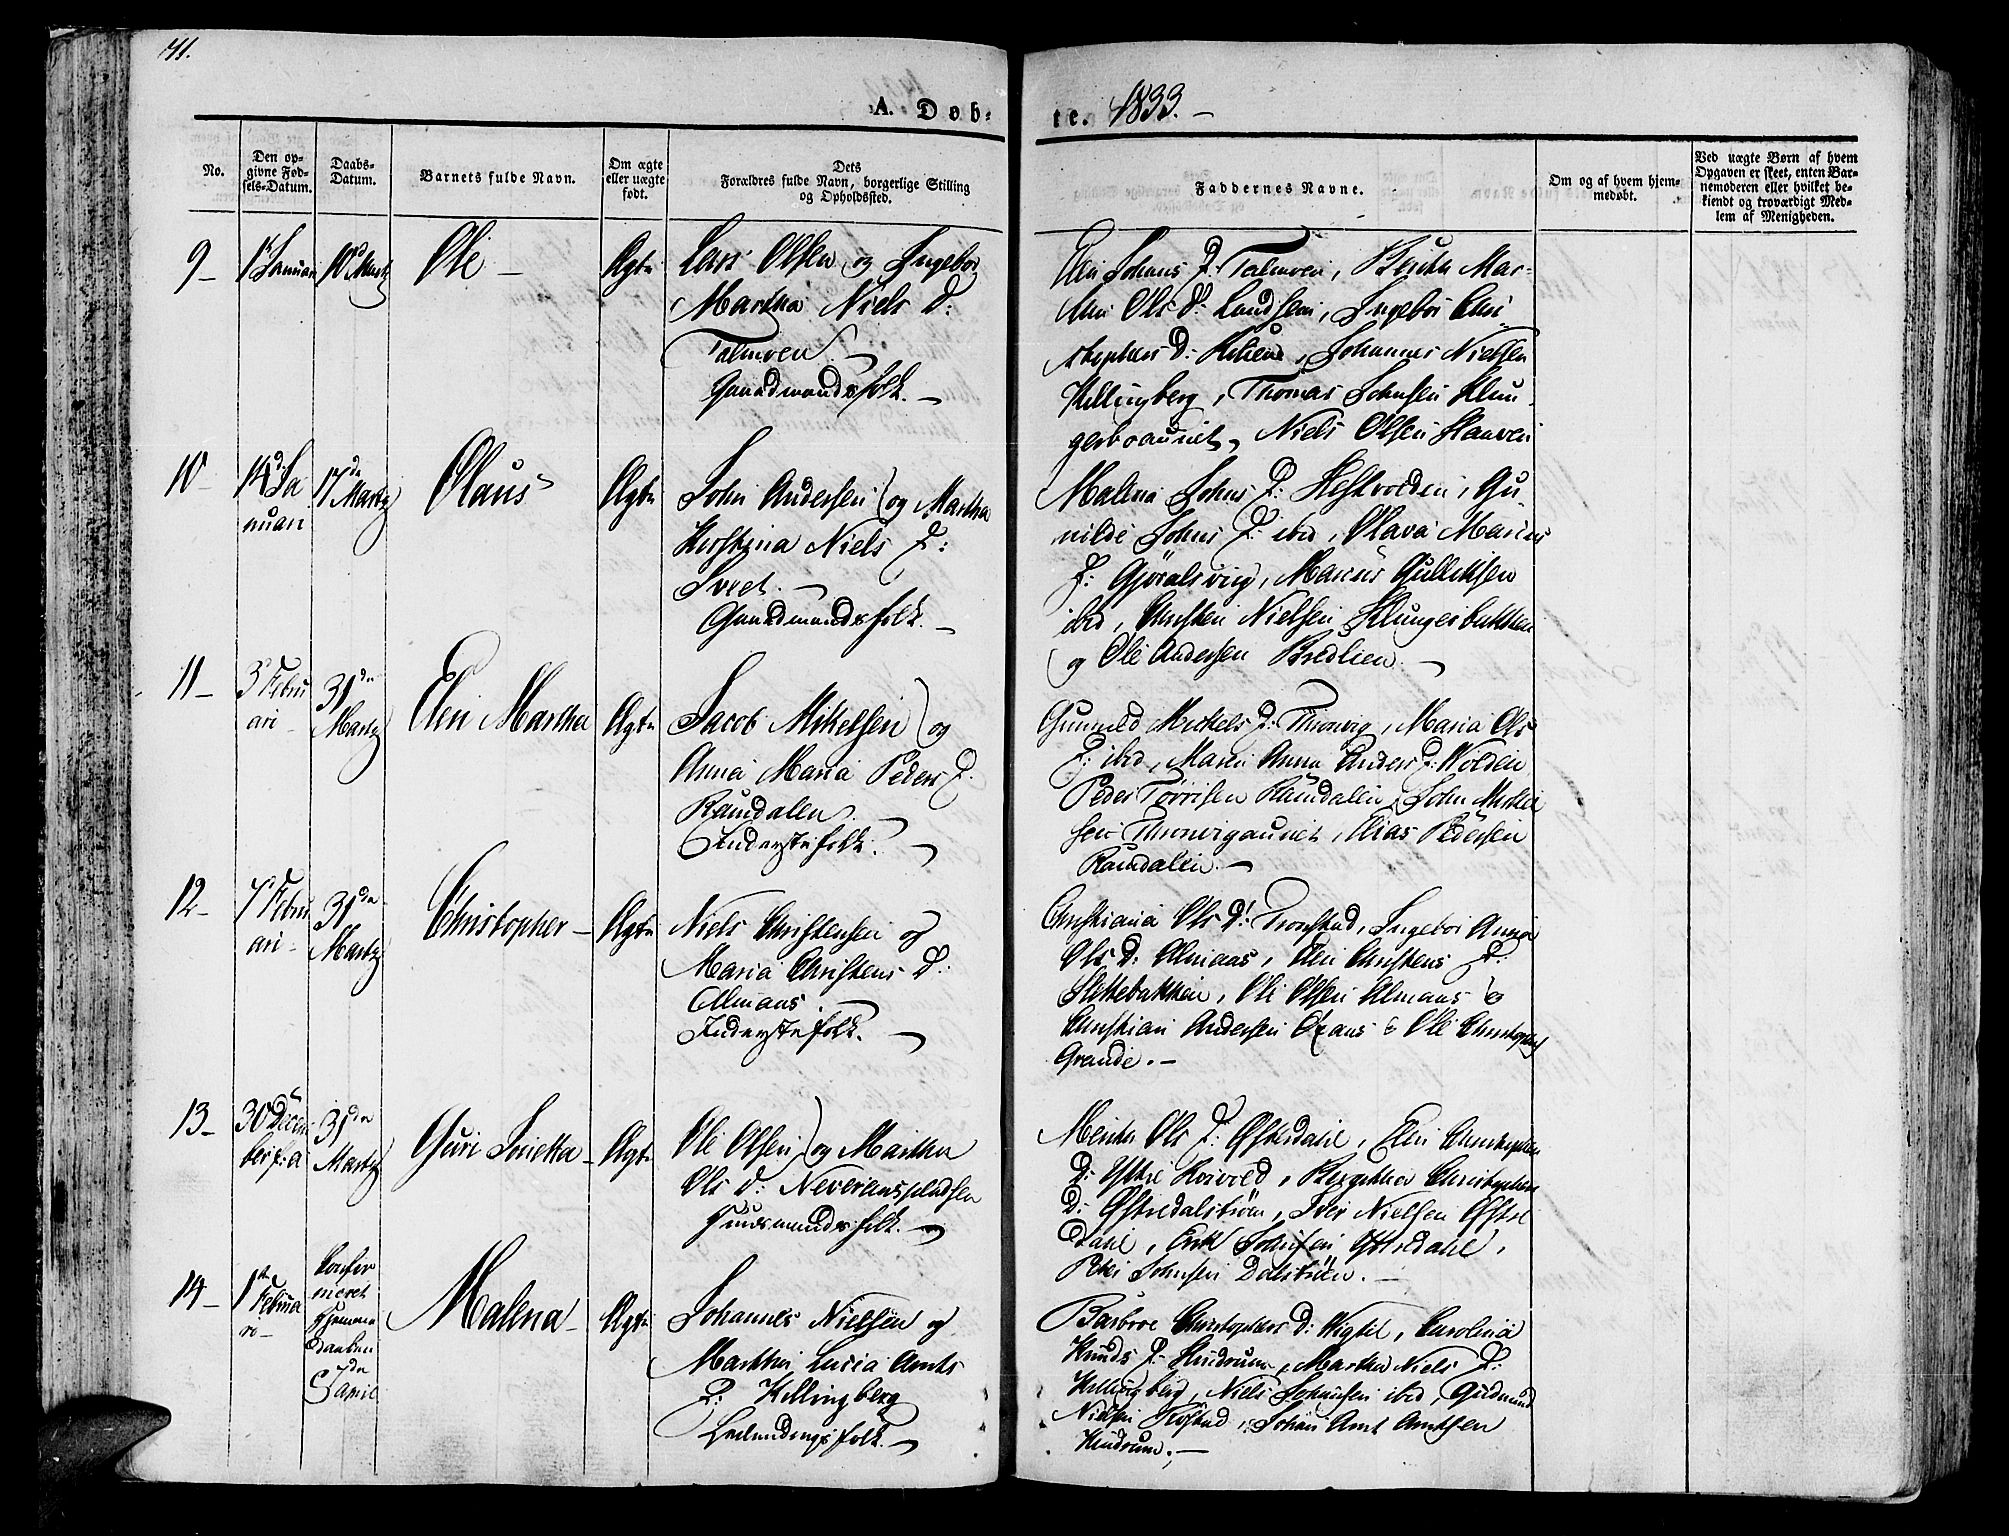 71.
A. Døb-
te. 1833. -
No.
Den op-
givne Fød-
sels-Datum.
Daabs-
Datum.
Barnets fulde Navn.
Om ægte
eller uægte
født.
Dets
Forældres fulde Navn, borgerlige Stilling
og Opholdssted.
Faddernes Navne.
Om og af hvem hjem-
medøbt.
Ved uægte Børn af hvem
Opgaven er skeet, enten Bar-
nemoderen eller hvilket be-
kiendt og troværdigt Med-
lem af Menigheden.
9 -
Januar
10 Martz
Ole -
Ægte
Lars Olsen og Ingebor
Martha Niels D:
Talmoen. -
Huusmandsfolk. -
Elen Johns D: Talmoen, Berith Mar-
tha Ols D: Lundseni, Ingebor Chri
stophers D:, Johannes Nielsen
Killingberg, Thomas Johnsen Klun
gerboaunet, Niels Olsen
10 -
14 Ja
nuari
17de Martz
Olaus
Ægte
John Andersen og Martha
Kerstina Niels D:
Sveet. -
Huusmandsfolk. -
Malena Johns D: Hestvolden, Gu
nilde Johns D: ibid, Olava Marius
D: Gjøralsvig, Marius Gulliksen
ibd, Christen Nielsen Klungerbakken
og Ole Andersen Bredlien. -
11 -
3 Febru
ari -
31de
Martz
Elen Martha
Ægte
Jacob Mikelsen og
Anna Maria Peders D.
Ramdalen. -
Inderstefolk. -
Gunnild Mickels D: Thronvig, Maria Ols
D: ibd, Maren Anna Anders D: Wolden
Peder Tørrisen Ramdalen, John Mickel
sen Thronvigaunet, Elias Pedersen
Ramdalen. -
12 -
7 Febru
ari -
31de
Martz
Christopher -
Ægte
Niels Christensen og
Maria Christens D:
Almaas. -
Inderstefolk. -
Christiana Ols D: Tronstad, Ingebor Anna
Ols D: Almaas, Elen Christens D:
Slettebakken, Ole Olsen Almaas &
Christian Andersen & Ole Christophers
Grande. -
13 -
30 Decem
ber f: a
31de
Martz
Guri Serietta -
Ægte
Ole Olsen og Martha
Ols D: Neveraaspladsen
Huusmandsfolk. -
Merethe Ols D: Østerdahl, Elen Christophers
D: Østre, Bergitha Christophers
D: Østredalstrøm, Iver Nielsen Østre
Dahl, Erik Johnsen Østredahl,
Peter Johnsen Dalstrøm. -
14 -
1ste
Februa
ri -
Confir
meret
Hjemme
Daaben
7de
April
Malena -
Ægte
Johannes Nielsen og
Martha Lucia Arnts
D: Killingberg
Leilændingsfolk. -
Barbroe Christophers D: Vigtil, Carolina
Knuds D: Hindrum, Martha Niels D:
Killingberg, Niels Johansen ibid, Gudmund
Nielsen Trøstad, Johan Arnt Arntsen
Hindrum. -